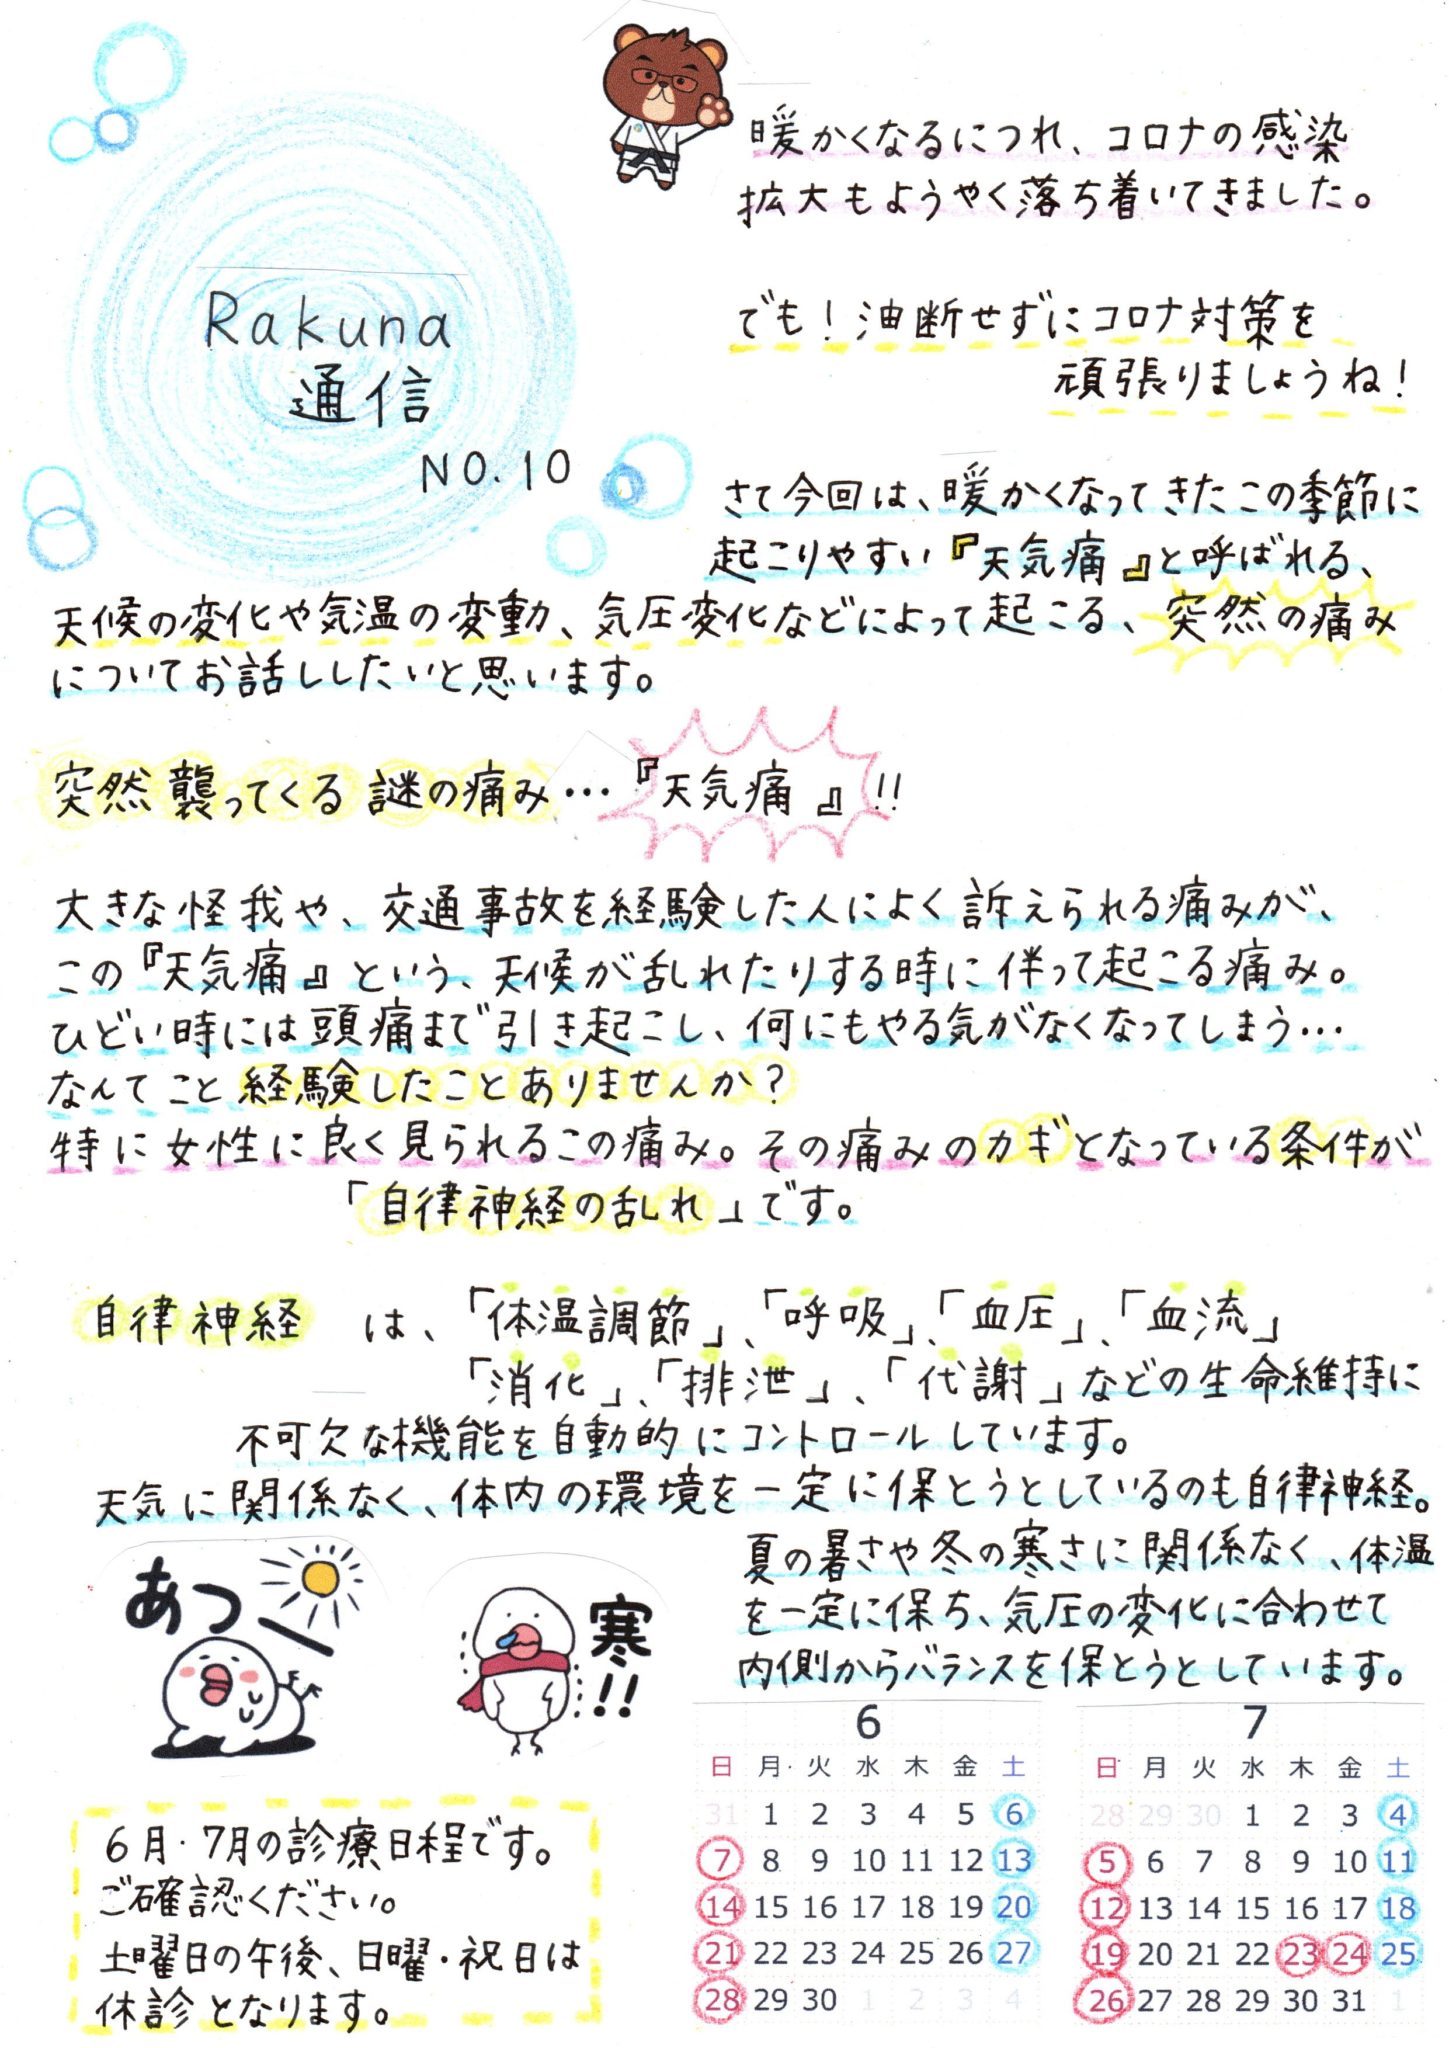 Rakuna
通信
NO.10
暖かくなるにつれ、コロナの感染
拡大もようやく落ち着いてきました。
でも！油断せずにコロナ対策を
頑張りましょうね！
さて今回は、暖かくなってきたこの季節に
起こりやすい『天気痛』と呼ばれる、
天候の変化や気温の変動、気圧変化などによって起こる、突然の痛み
についてお話ししたいと思います。
突然襲ってくる謎の痛み…『天気痛』!!
大きな怪我や、交通事故を経験した人によく訴えられる痛みが、
この『天気痛』という、天候が乱れたりする時に伴って起こる痛み。
ひどい時には頭痛まで引き起こし、何にもやる気がなくなってしまう…
なんてこと経験したことありませんか？
特に女性に良く見られるこの痛み。その痛みのカギとなっている条件が
「自律神経の乱れ」です。
自律神経 は、「体温調節」、「呼吸」、「血圧」、「血流」
「消化」、「排泄」、「代謝」などの生命維持に
不可欠な機能を自動的にコントロールしています。
天気に関係なく、体内の環境を一定に保とうとしているのも自律神経。
夏の暑さや冬の寒さに関係なく、体温
を一定に保ち、気圧の変化に合わせて
内側からバランスを保とうとしています。
あつー
寒!!
6月・7月の診療日程です。
ご確認ください。
土曜日の午後、日曜・祝日は
休診となります。
6
日 月 火 水 木 金 土
31 1 2 3 4 5 6
7 8 9 10 11 12 13
14 15 16 17 18 19 20
21 22 23 24 25 26 27
28 29 30 1 2 3 4
7
日 月 火 水 木 金 土
28 29 30 1 2 3 4
5 6 7 8 9 10 11
12 13 14 15 16 17 18
19 20 21 22 23 24 25
26 27 28 29 30 31 1